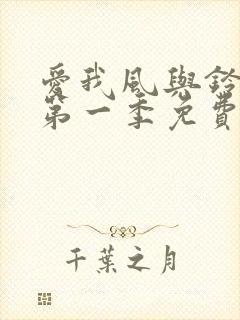 愛我風與鈴
第一季免費
千葉之月